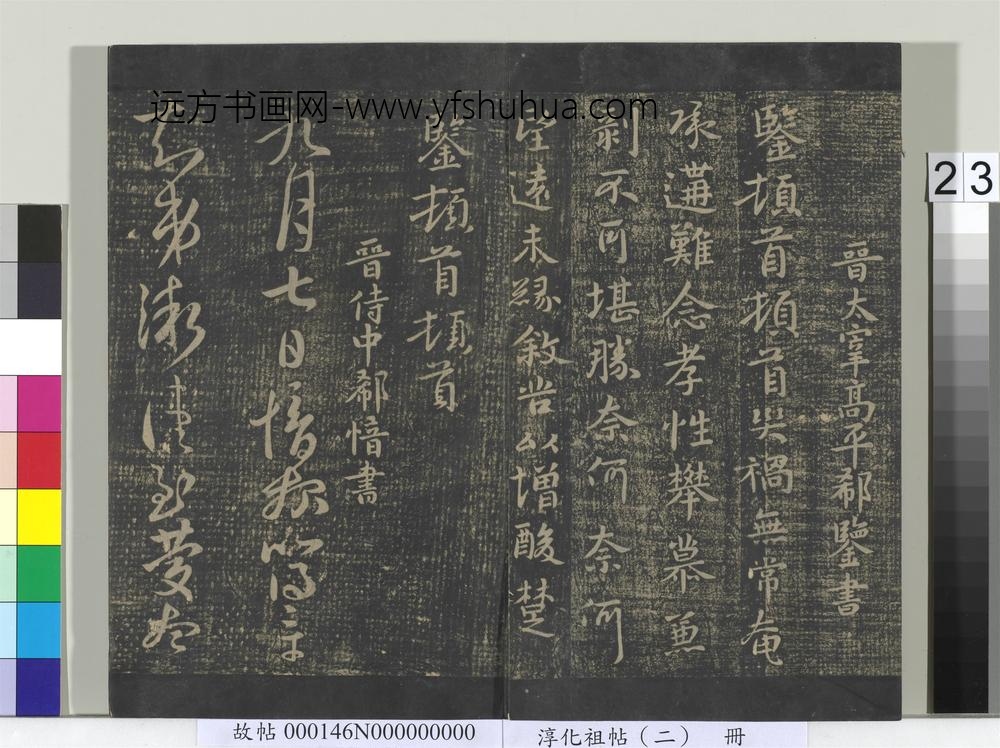 远方书画网-www.yfshuhua.com
晉太宰高平郗鑒書
鑒頓首頓首災禍無常奄
承遘難念孝性攀慕兼
剝不可堪勝奈何奈何
望遠未緣敘苦以增酸楚
鑒頓首頓首
晉侍中郗愔書
九月七日愔報比得章
知弟漸佳至慶想
23
故帖 000146N000000000
淳化祖帖（二） 冊